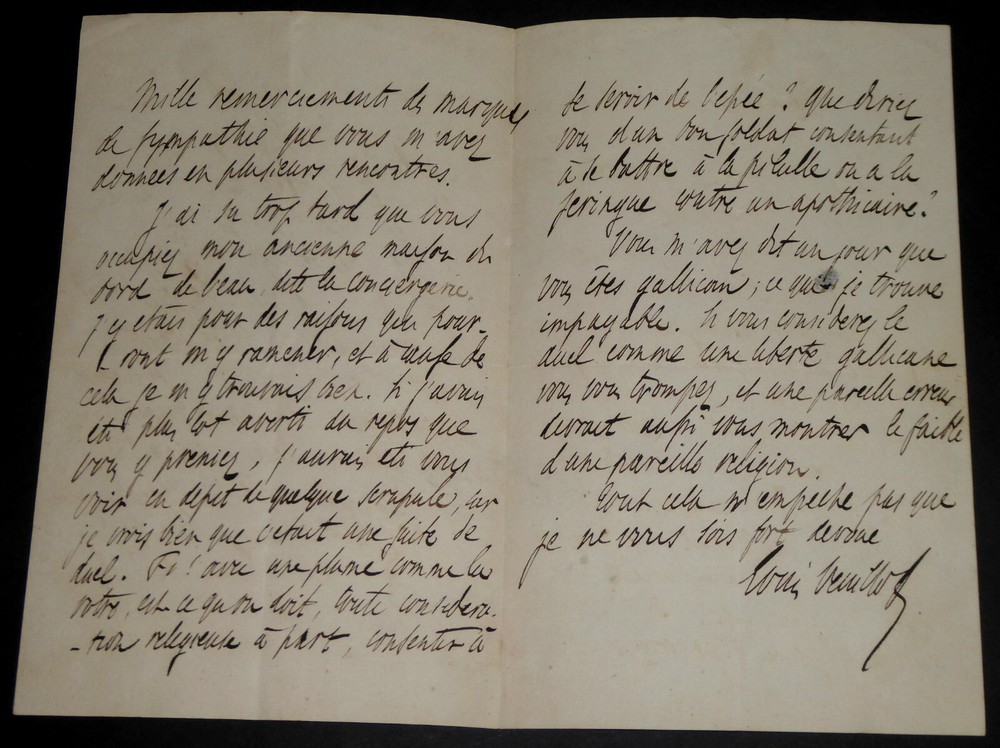 Mille remerciements des marques
de sympathie que vous m'avez
données en plusieurs rencontres.
J'ai su trop tard que vous
occupiez mon ancienne maison du
bord de l'eau, dite la conciergerie.
J'y étais pour des raisons qui pour-
-ront m'y ramener, et à cause de
cela je m'y trouvais bien. Si j'avais
été plus tot averti du repos que
vous y preniez, j'aurais été vous
voir en dépit de quelque scrupule, car
je crois bien que c'etait une suite de
duel. Fi! avec une plume comme la
votre, est-ce qu'on doit, toute considera-
-tion religieuse à part, consentir à
se servir de l'epée? Que diriez
vous d'un bon soldat consentant
à se battre à la pilulle ou a la
seringue contre un apothicaire?
Vous m'avez dit un jour que
vous êtes gallican; ce que je trouve
impayable. Si vous considerez le
duel comme une liberté gallicane
vous vous trompez, et une pareille erreur
devrait aussi vous montrer le faible
d'une pareille religion.
Tout cela n'empeche pas que
je ne vous sois fort devoué
Louis Veuillot